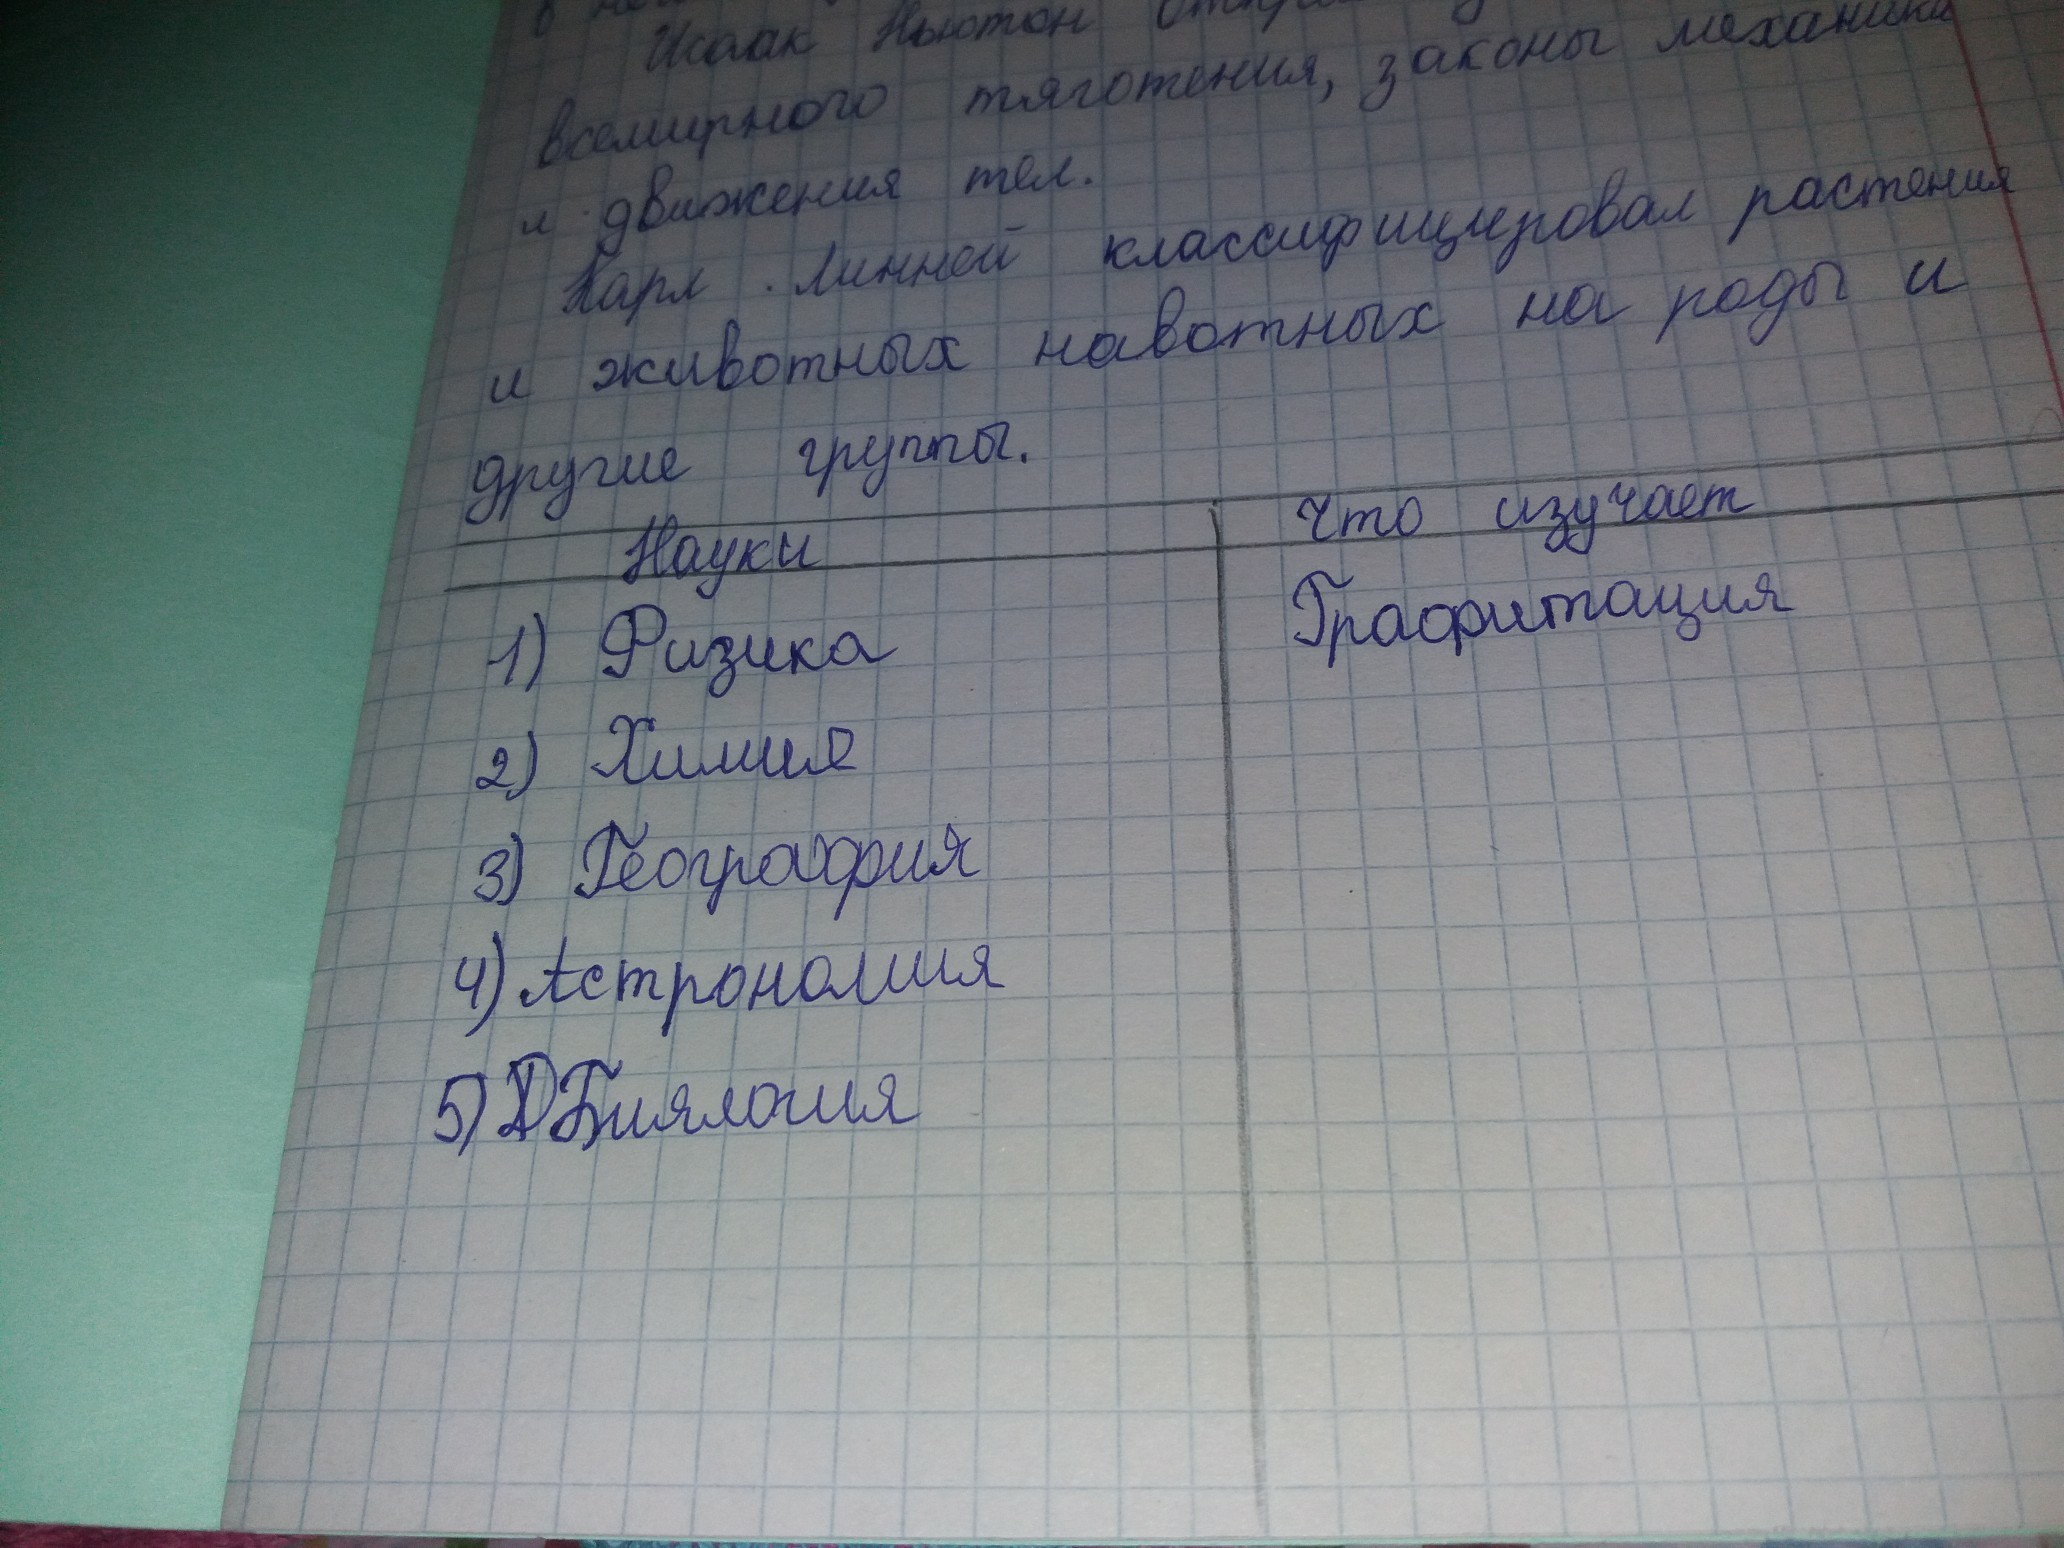 Исаак Ньютон
всемирного тяготения, законы механики
и движения тел.
Карл Линней классифицировал растения
и животных навотных на роды и
другие группы.
Науки Что изучает
1) Физика Графитация
2) Химия
3) География
4) Астрономия
5) Биялогия